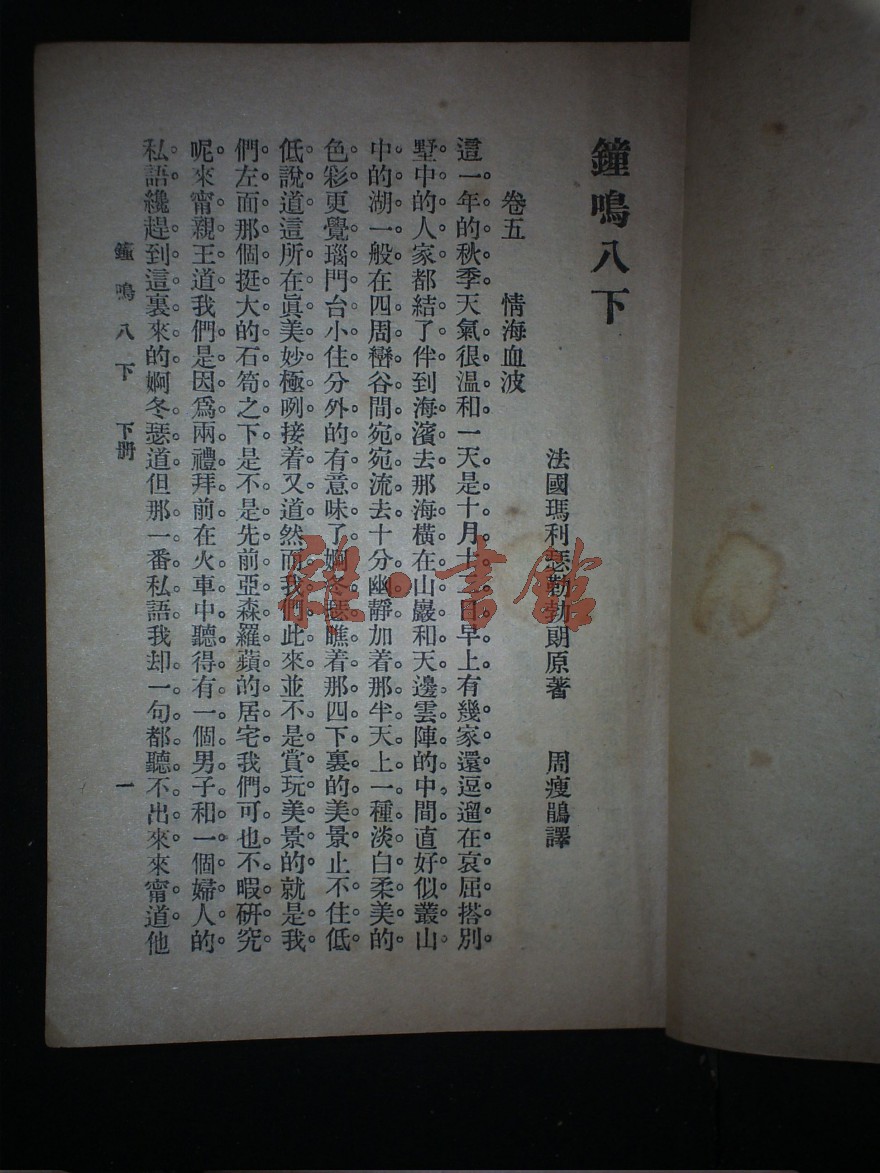 鐘鳴八下
法國瑪利瑟勒勃朗原著　周瘦鵑譯
卷五　情海血波
這一年的秋季天氣很溫和一天是十月十二日早上有幾家還逗遛在哀屈搭別
墅中的人家都結了伴到海濱去那海橫在山巖和天邊雲陣的中間直好似叢山
中的湖一般在四周巒谷間宛宛流去十分幽靜加着那半天上一種淡白柔美的
色彩更覺瑙門台小住分外的有意味了婀冬瑟瞧着那四下裏的美景止不住低
低說道這所在眞美妙極咧接着又道然而我們此來並不是賞玩美景的就是我
們左面那個挺大的石筍之下是不是先前亞森羅蘋的居宅我們可也不暇研究
呢來甯親王道我們是因爲兩禮拜前在火車中聽得有一個男子和一個婦人的
私語纔趕到這裏來的婀冬瑟道但那一番私語我却一句都聽不出來來甯道他
鐘鳴八下　下册　一
程·書館